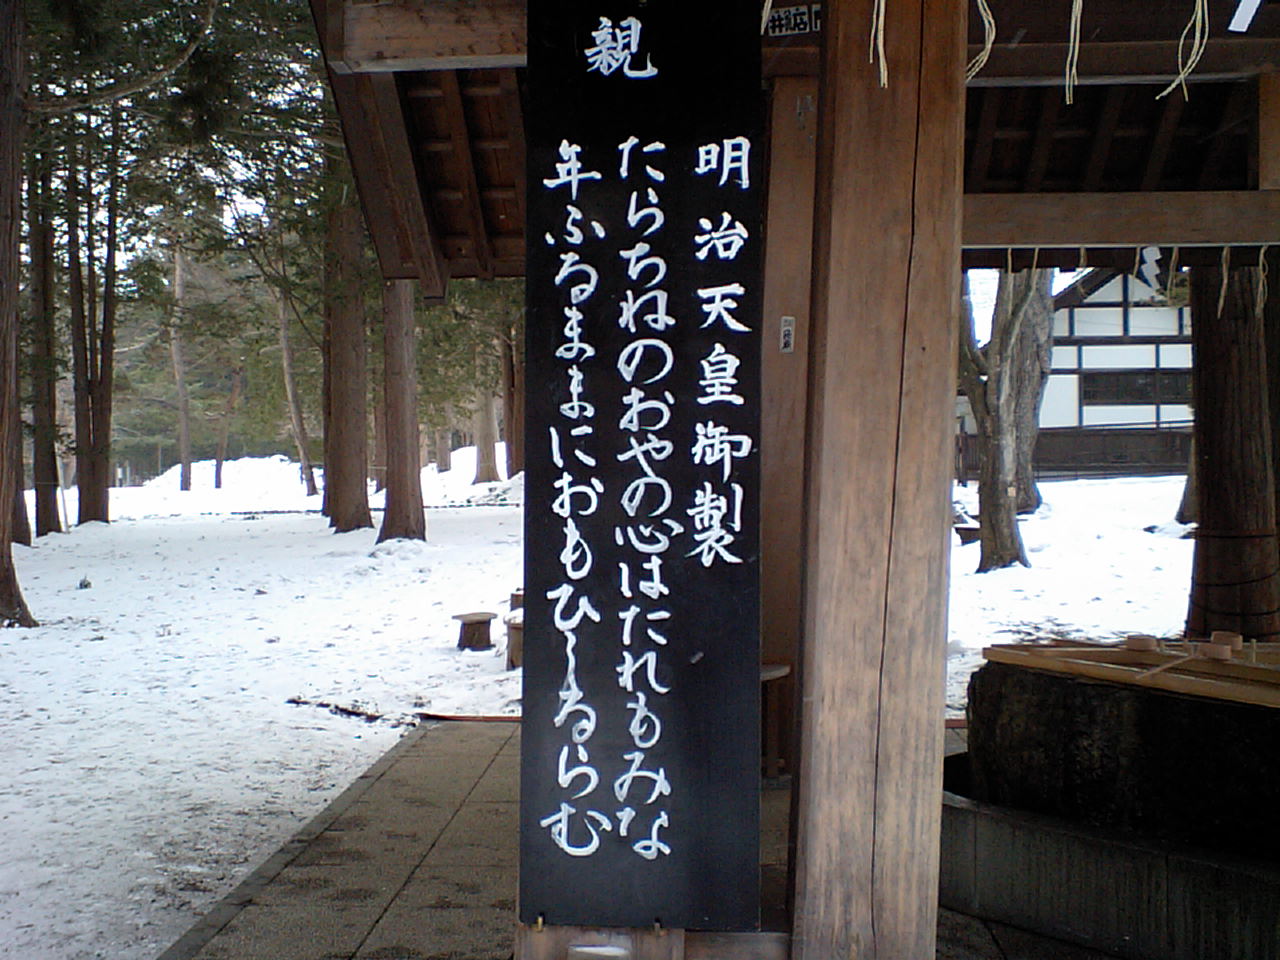 親
明治天皇御製
たらちねのおやの心はたれもみな
年ふるまゝにおもひしるらむ